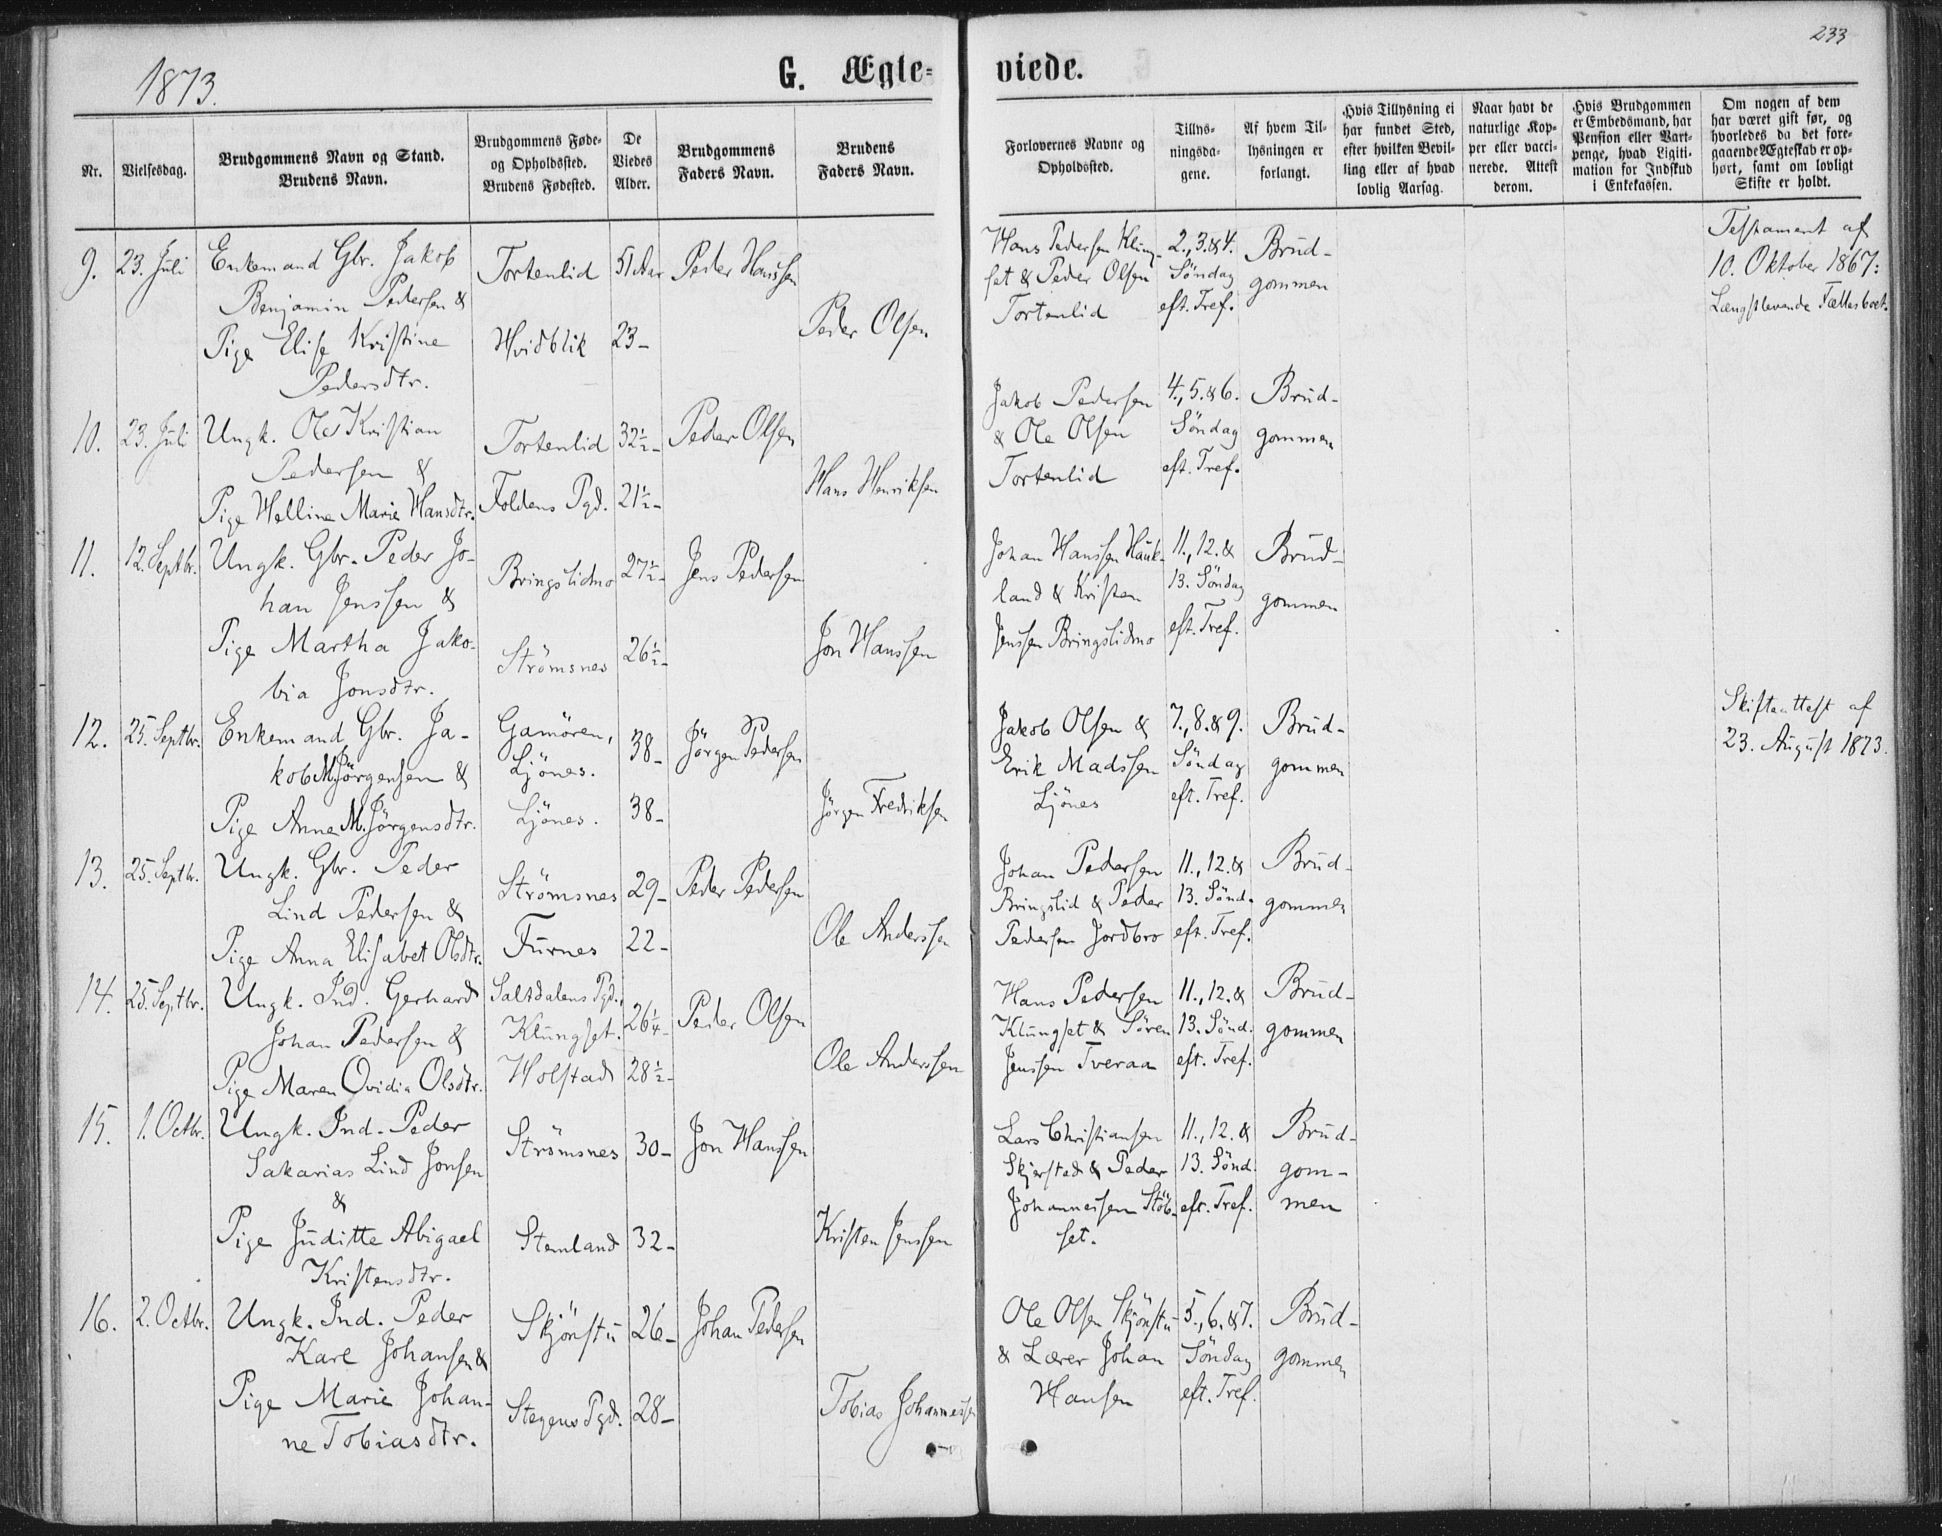 233
1873.
G. Ægte-
viede.
Nr.
Vielsesdag.
Brudgommens Navn og Stand.
Brudens Navn.
Brudgommens Føde-
og Opholdssted.
Brudens Fødested.
De
Viedes
Alder.
Brudgommens
Faders Navn.
Brudens
Faders Navn.
Forlovernes Navne og
Opholdssted.
Tillys-
ningsda-
gene.
Af hvem Til-
lysningen er
forlangt.
Hvis Tillysning ei
har fundet Sted,
efter hvilken Bevil-
ling eller af hvad
lovlig Aarsag.
Naar havt de
naturlige Kop-
per eller vacci-
nerede. Attest
derom.
Hvis Brudgommen
er Embedsmand, har
Pension eller Vart-
penge, hvad Ligiti-
mation for Indskud
i Enkekassen.
Om nogen af dem
har været gift før, og
hvorledes da det fore-
gaaende Ægteskab er op-
hørt, samt om lovligt
Skifte er holdt.
9. 23. Juli
Enkemand Gbr. Jakob
Benjamin Pedersen &
Pige Elise Kristine
Pedersdtr.
Tortenlid
Hvidblik
51 Aar
23-
Peder Hanssen
Peder Olsen
Hans Pedersen Klung-
set & Peder Olsen
Tortenlid
2., 3. & 4.
Söndag
eft. Tref.
Brud-
gommen
Testament af
10. Oktober 1867:
Længstlevende Fællesboet.
10. 23. Juli
Ungk. Ole Kristian
Pedersen &
Pige Helline Marie Hansdtr.
Tortenlid
Foldens Pgd.
32½-
21½-
Peder Olsen
Hans Henriksen
Jakob Pedersen
& Ole Olsen
Tortenlid
4., 5. & 6.
Söndag
eft. Tref.
Brud-
gommen
11. 12. Septbr.
Ungk. Gbr. Peder Jo-
han Jenssen &
Pige Martha Jako-
bia Jonsdtr.
Bringslidmo
Strömsnes
27½-
26½-
Jens Pedersen
Jon Hanssen
Johan Hanssen Hauk-
land & Kristen
Jenssen Bringslidmo
11., 12. &
13. Söndag
eft. Tref.
Brud-
gommen
12. 25. Septbr.
Enkemand Gbr. Ja-
kob M. Jörgensen &
Pige Anne M. Jörgensdtr.
Gamören,
Ljönes.
Ljönes.
38-
38-
Jörgen Pedersen
Jörgen Fredriksen
Jakob Olsen &
Erik Madssen
Ljönes
7., 8. & 9.
Söndag
eft. Tref.
Brud-
gommen
Skifteattest af
23. August 1873.
13. 25. Septbr.
Ungk. Gbr. Peder
Lind Pedersen &
Pige Anna Elisabet Olsdtr.
Strömsnes
Furnes
29-
22-
Peder Pedersen
Ole Anderssen
Johan Pedersen
Bringslid & Peder
Pedersen Jordbro
11., 12. &
13. Sönd.
eft. Tref.
Brud-
gommen
14. 25. Septbr.
Ungk. Ind. Gerhard
Johan Pedersen &
Pige Maren Ovidia Olsdtr.
Saltdalens Pgd.,
Klungset.
Holstad
26¼-
28½-
Peder Olsen
Ole Anderssen
Hans Pedersen
Klungset & Sören
Jenssen Tveraa
11., 12. &
13. Sönd.
eft. Tref.
Brud-
gommen
15. 1. Octbr.
Ungk. Ind. Peder
Sakarias Lind Jonsen
&
Pige Juditte Abigael
Kristensdtr.
Strömsnes
Stemland
30-
32-
Jon Hanssen
Kristen Jenssen
Lars Christiansen
Skjerstad & Peder
Johannessen Stöb-
set.
11., 12. &
13. Sönd.
eft. Tref.
Brud-
gom-
men
16. 2. Octbr.
Ungk. Ind. Peder
Karl Johansen &
Pige Marie Johan-
ne Tobiasdtr.
Skjönstu
Stegens Pgd.
26-
28-
Johan Pedersen
Tobias Johannessen
Ole Olsen Skjönstu
& Lærer Johan
Hansen
5., 6. & 7.
Söndag
eft. Tref.
Brud-
gommen